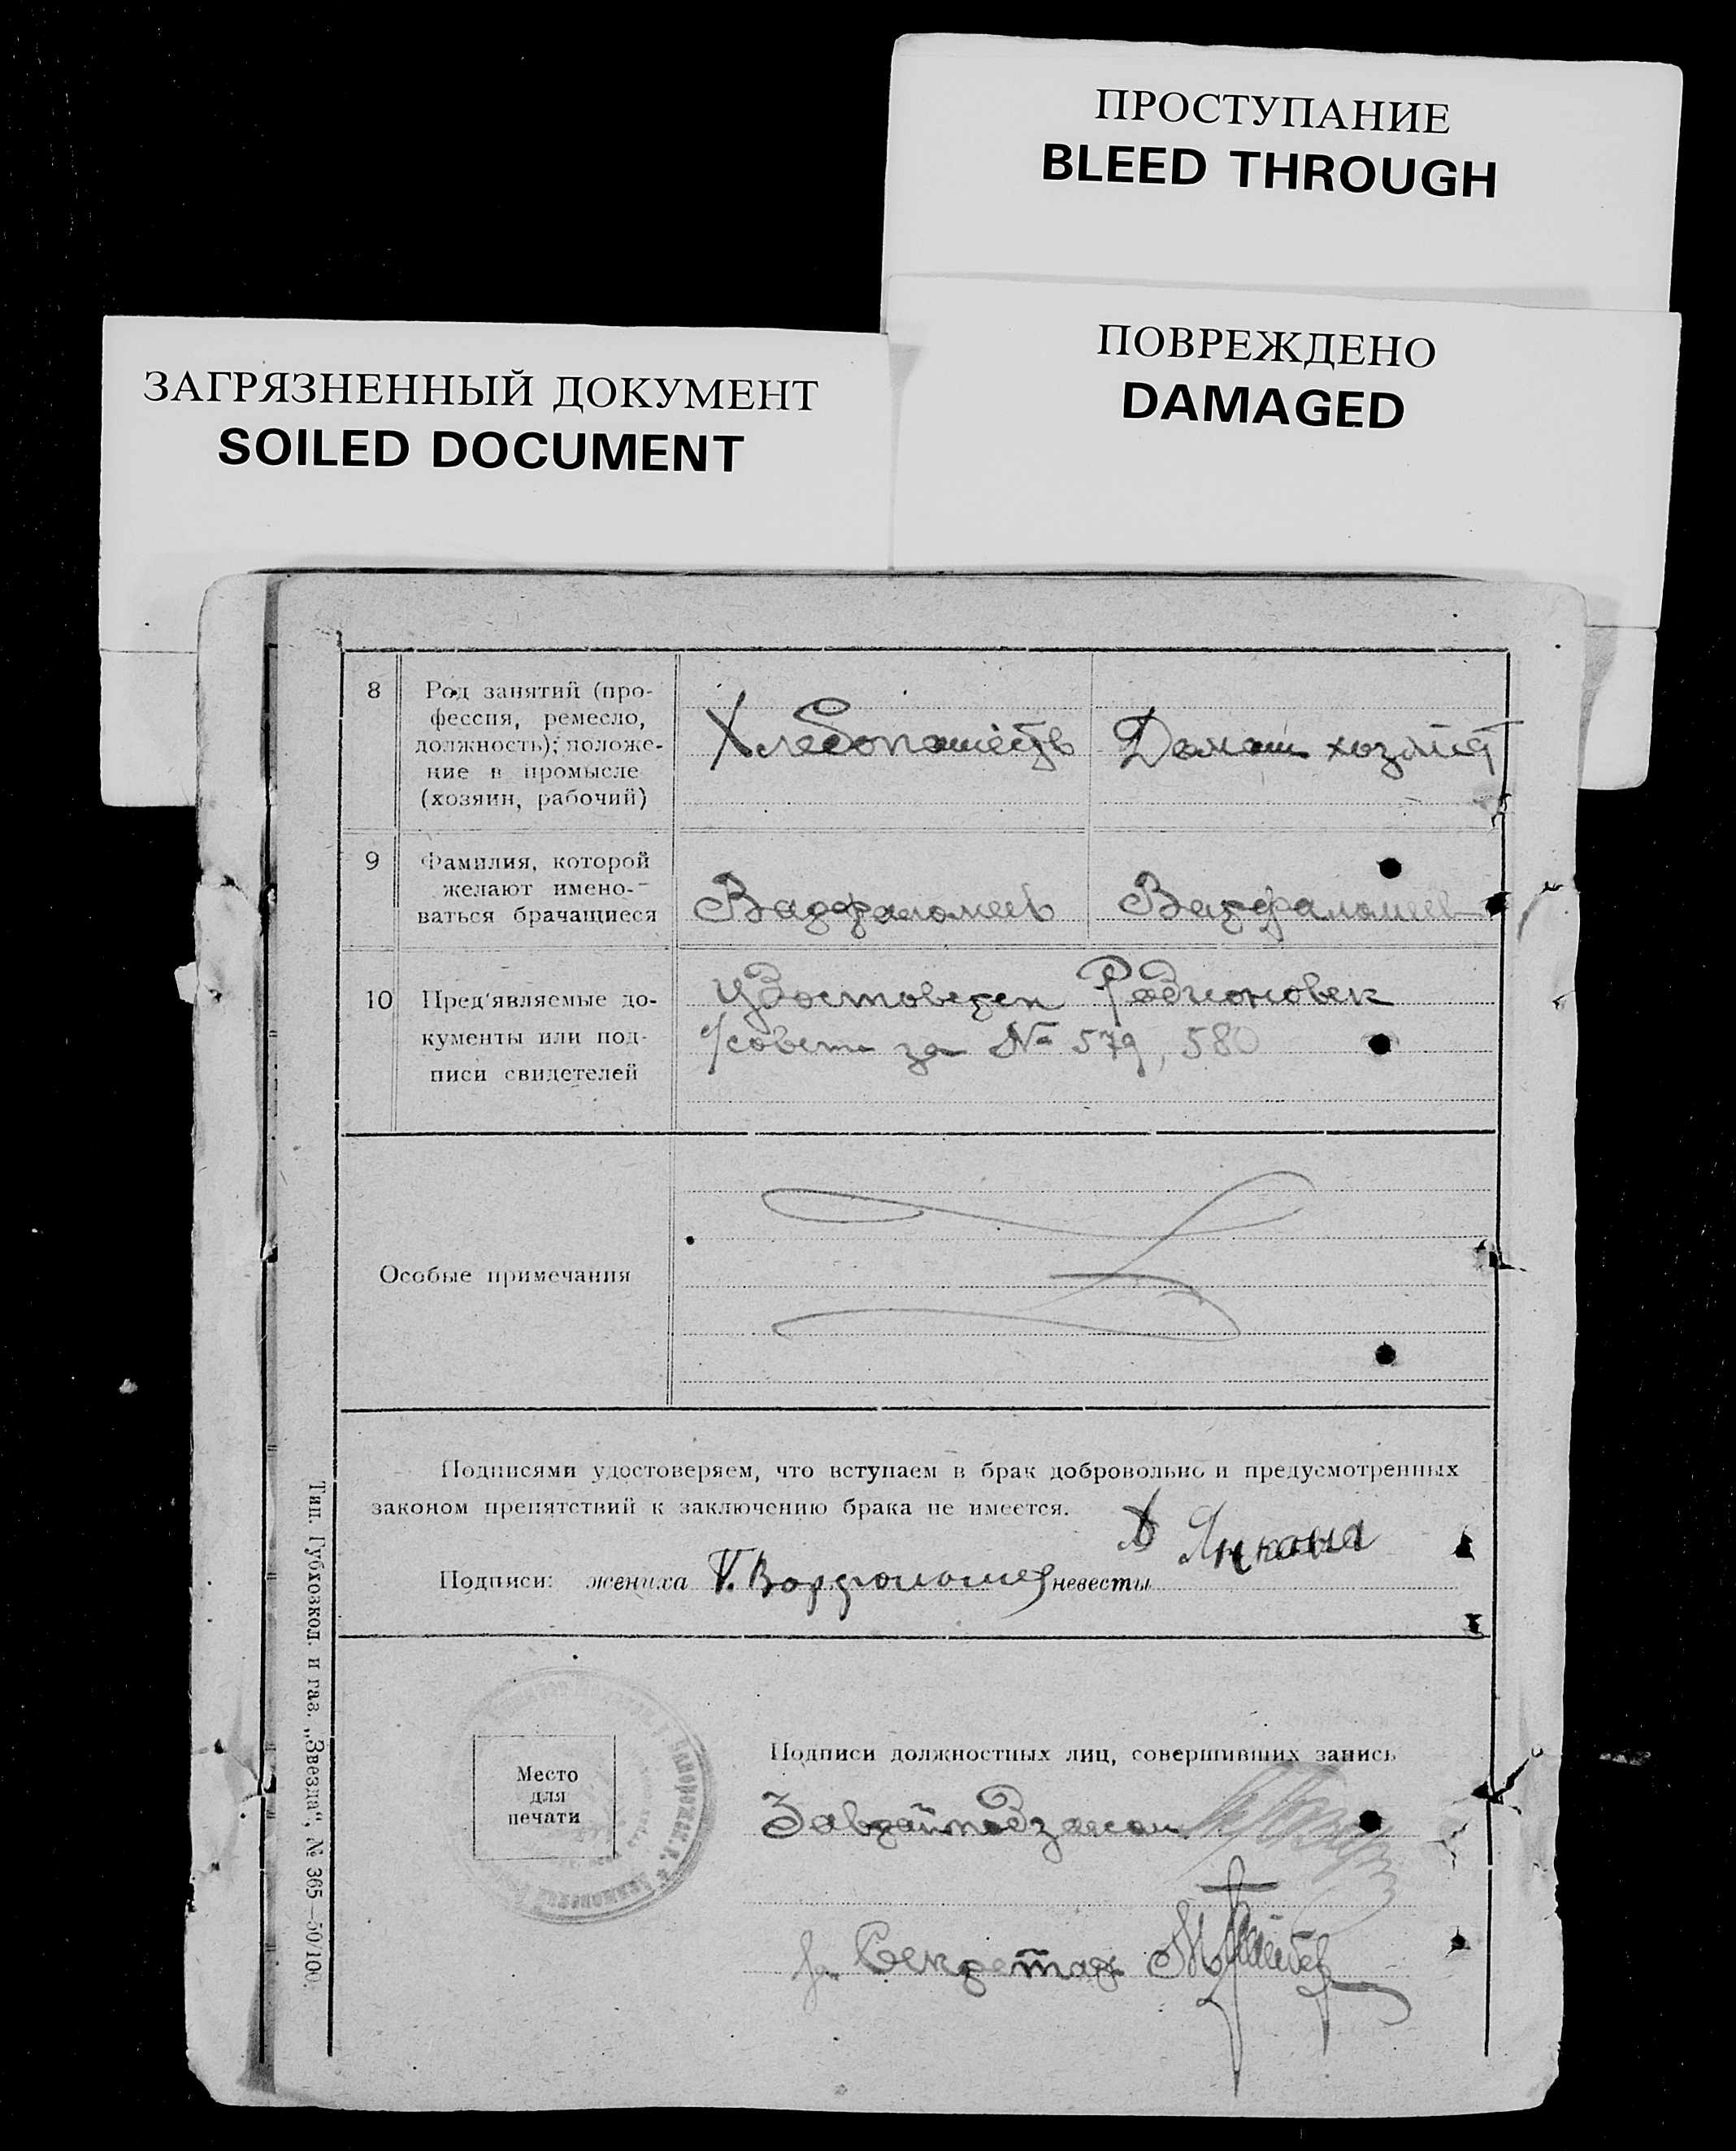 ПРОСТУПАНИЕ
BLEED THROUGH
ПОВРЕЖДЕНО
DAMAGED
ЗАГРЯЗНЕННЫЙ ДОКУМЕНТ
SOILED DOCUMENT
8
Род занятий (про-
фессия, ремесло,
должность); положе-
ние в промысле
(хозяин, рабочий)
Хлебопашеств
Домаш хозяйст
9
Фамилия, которой
желают имено-
ваться брачащиеся
Варфаломеев
Варфаломеев
10
Пред'являемые до-
кументы или под-
писи свидетелей
Удостоверен Родионовск
с/совета за № 579, 580
Особые примечания
Подписями удостоверяем, что вступаем в брак добровольно и предусмотренных
законом препятствий к заключению брака не имеется.
Подписи: жениха В. Варфоломеев невесты Янкова
Место
для
печати
Подписи должностных лиц, совершивших запись
Секретарь
Тип. Губхозкол. и газ. „Звезда", № 365—50/100.